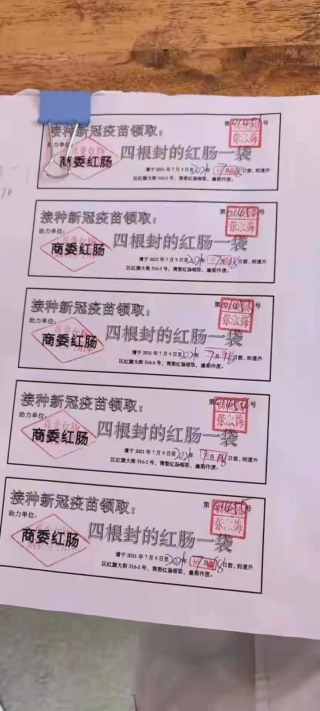 接种新冠疫苗领取：
第 号
助力单位：
商委红肠
四根封的红肠一袋
张汝海
请于2021年7月9日至2021年7月18日前，到道外
区红旗大街316-2号，商委红肠领取，逾期作废。
接种新冠疫苗领取：
第 号
助力单位：
商委红肠
四根封的红肠一袋
请于2021年7月9日至2021年7月18日前，到道外
区红旗大街316-2号，商委红肠领取，逾期作废。
接种新冠疫苗领取：
第 号
助力单位：
商委红肠
四根封的红肠一袋
请于2021年7月9日至2021年7月18日前，到道外
区红旗大街316-2号，商委红肠领取，逾期作废。
接种新冠疫苗领取：
第 号
助力单位：
商委红肠
四根封的红肠一袋
请于2021年7月9日至2021年7月18日前，到道外
区红旗大街316-2号，商委红肠领取，逾期作废。
接种新冠疫苗领取：
第 号
助力单位：
商委红肠
四根封的红肠一袋
请于2021年7月9日至2021年7月18日前，到道外
区红旗大街316-2号，商委红肠领取，逾期作废。